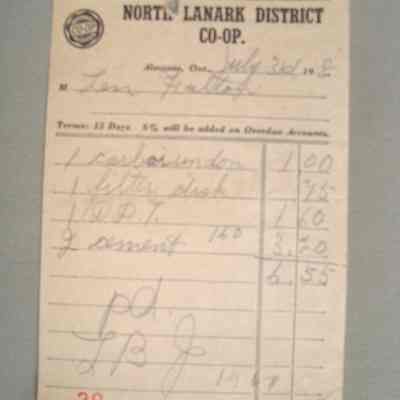 CO-OP
NORTH LANARK DISTRICT
CO-OP.
Almonte, Ont., July 3rd 19
M Len Fulton
Terms: 15 Days 8% will be added on Overdue Accounts.
1 carborundon 1.00
1 litter dish .75
1 D.D.T. 1.60
2 cement 160 3.20
6.55
pd.